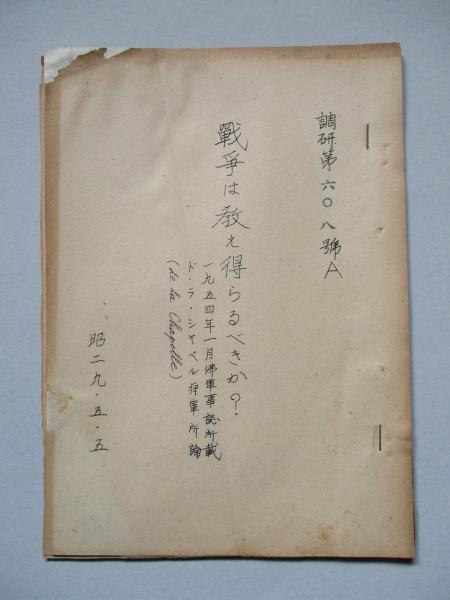 調研第六〇八號A
戰爭は教え得らるべきか?
一九五四年一月佛軍事誌所載
ド・ラ・シャペル将軍所論
(de la Chapelle)
昭二九・五・五